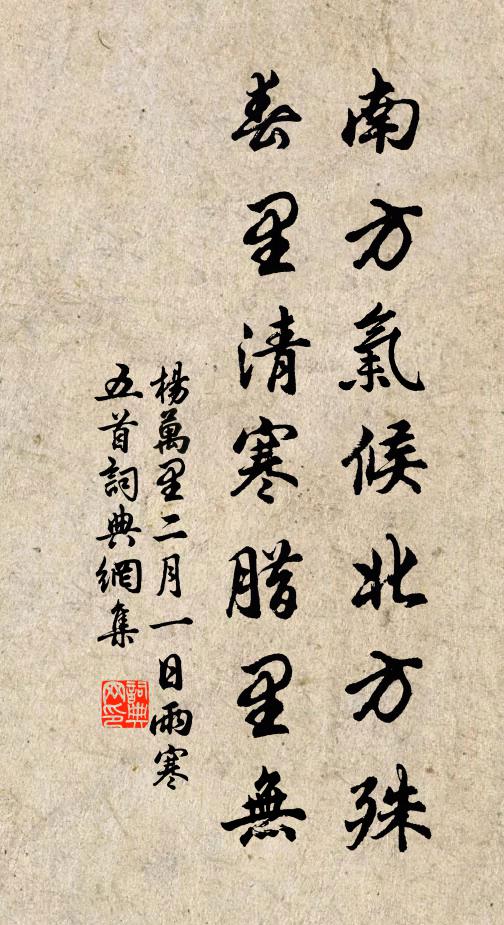 南方氣候北方殊
春里清寒腊里無
楊萬里二月一日雨寒
五首詞典網集
詞典
网印